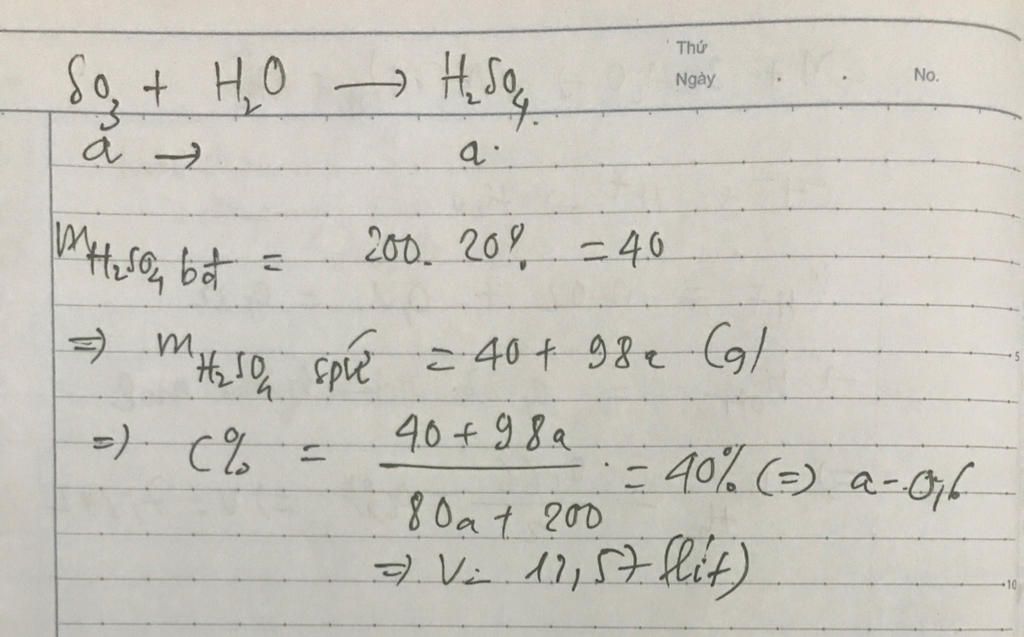 Thứ
Ngày . . No.
SO3 + H2O → H2SO4
a → a
mH2SO4 bđ = 200. 20% = 40
=> mH2SO4 spứ = 40 + 98a (g)
=> C% = (40 + 98a) / (80a + 200) = 40% (=) a = 0,6
=> V = 12,57 (lít)
5
10